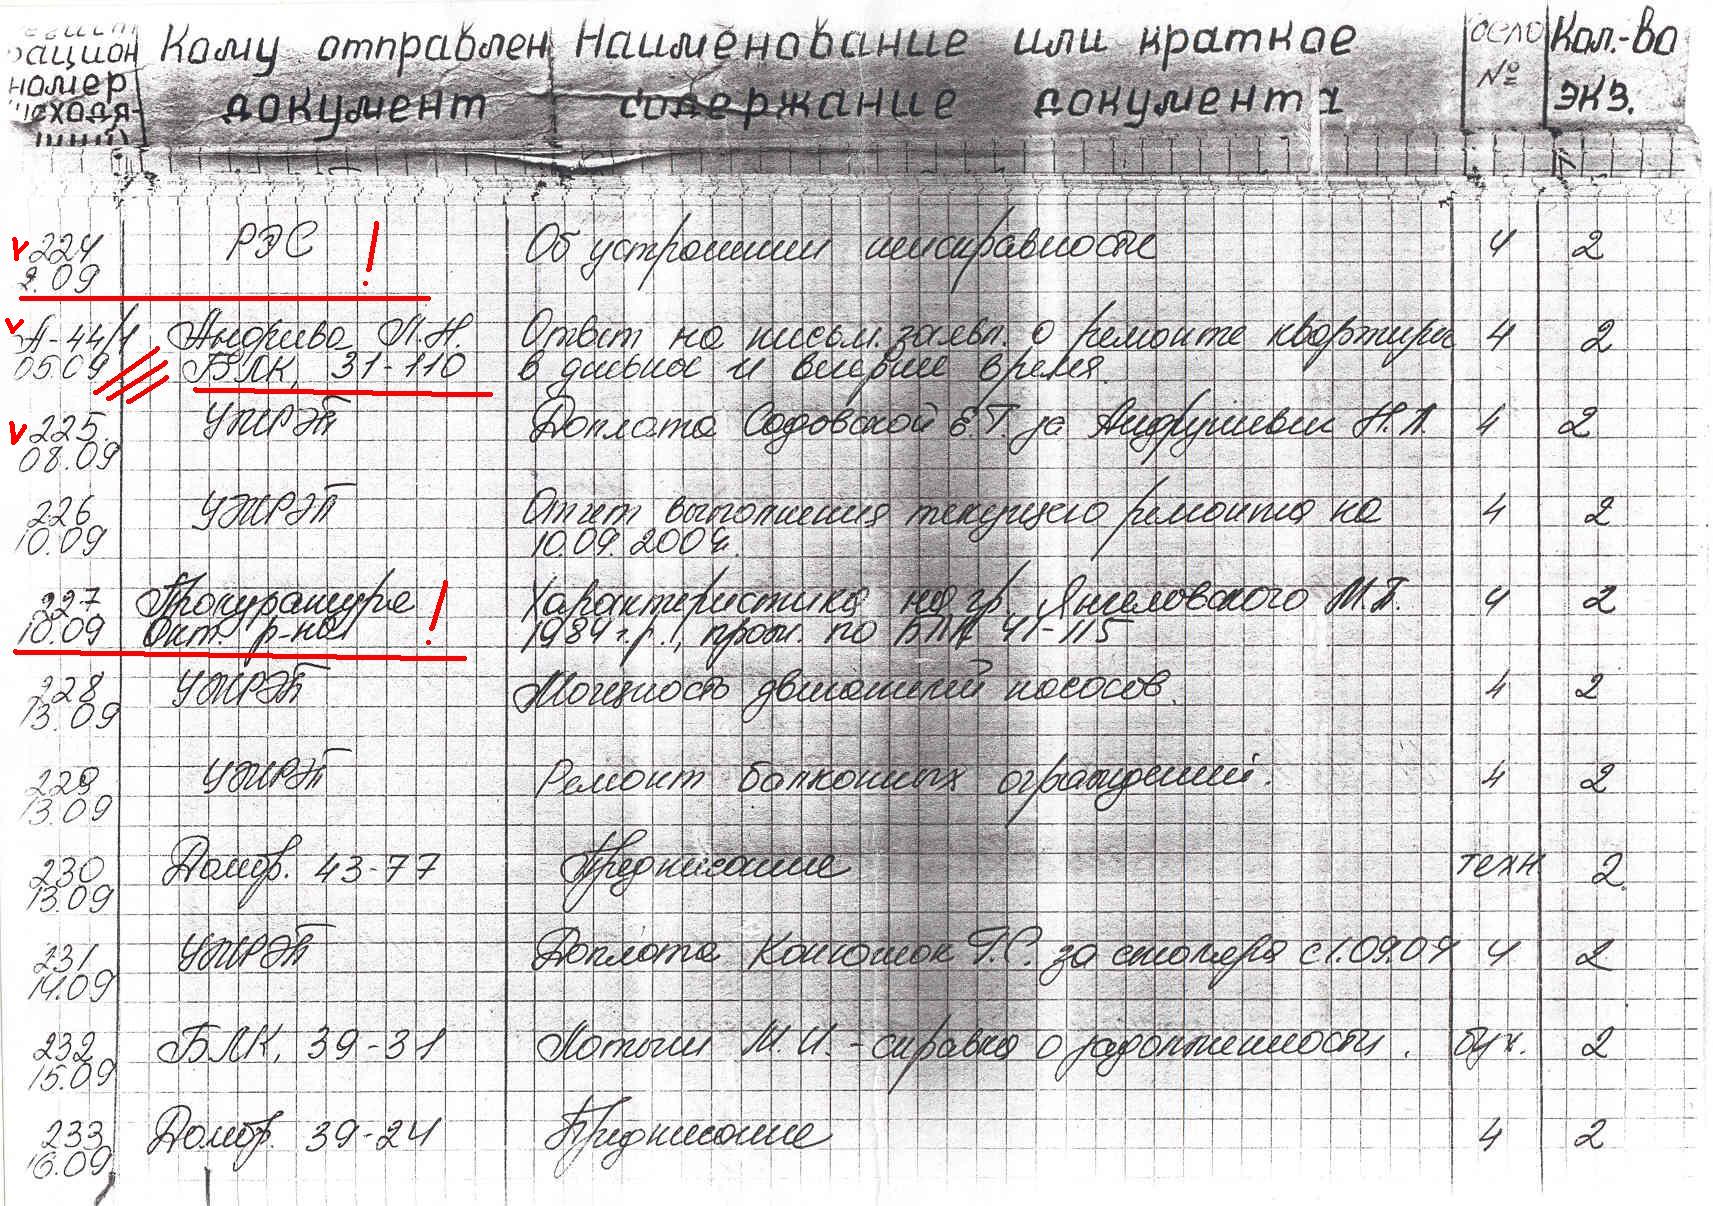 рацион Кому отправлен Наименование или краткое дело Кол.-во
номер № экз.
исходя- документ содержание документа
щий)
224 РЭС ! Об устранении неисправности 4 2
2.09
А-44/1 Андриева Л.Н. Ответ на письм. заявл. о ремонте квартиры 4 2
05.09 БЛК, 31-110 в дневное и вечернее время.
225. УЖРЭП Доплата Садовской Е.Г. за Н.Л. 4 2
08.09
226 УЖРЭП Отчет выполнения текущего ремонта на 4 2
10.09 10.09.2004г.
227 Прокуратура ! Характеристика на гр. Янгеловского М.П. 4 2
10.09 Окт. р-на 1984 г.р., прож. по БЛК 41-115
228 УЖРЭП Мощность двигателей насосов. 4 2
13.09
229 УЖРЭП Ремонт балконных ограждений. 4 2
13.09
230 Домбр. 43-77 Предписание техн 2
13.09
231 УЖРЭП Доплата Г.С. за столяра с 1.09.04 4 2
14.09
232 БЛК, 39-31 М.И. - справка о задолженности. бух. 2
15.09
233 Домбр. 39-24 Предписание 4 2
16.09